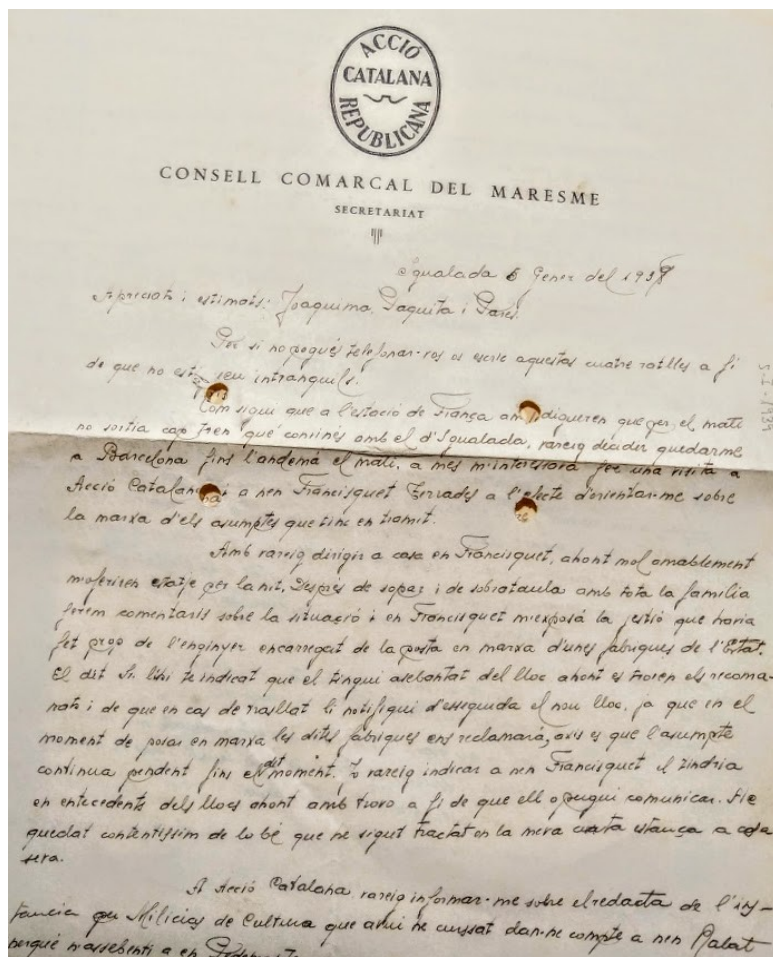 ACCIÓ
CATALANA
REPUBLICANA
CONSELL COMARCAL DEL MARESME
SECRETARIAT
Igualada 6 Gener del 1938
Apreciats i estimats: Joaquima, Paquita i Pares.
Per si no pogués telefonar-vos os escric aquestas cuatre ratlles a fi
de que no esteu intranquils.
Com sigui que a l'estació de França am digueren que per el matí
no sortia cap tren que convinés amb el d'Igualada, vareig decidir quedarme
a Barcelona fins l'andemà el matí, a més m'interesava fer una visita a
Acció Catalana i a nen Francisquet Terrades a l'efecte d'orientar-me sobre
la marxa d'els asumptes que tinc en tramit.
Amb vareig dirigir a casa en Francisquet, ahont mol amablement
m'oferiren estatje per la nit. Després de sopar i de sobrataula amb tota la familia
ferem comentaris sobre la situació i en Francisquet m'exposá la jestió que havia
fet prop de l'enginyer encarregat de la posta en marxa d'unes fabriques de l'Estat.
El dit Sr. li hi te indicat que el tingui asebantat del lloc ahont es troven els recoma-
nats i de que en cas de trasllat li notifiqui d'esseguida el nou lloc, ja que en el
moment de posar en marxa les dites fabriques ens reclamará, axis es que l'asumpte
continua pendent fins el dit moment. Jo vareig indicar a nen Francisquet el tindria
en entecedents dels llocs ahont amb trovo a fi de que ell o pugui comunicar. He
quedat contentissim de lo bé que he sigut tractat en la meva curta estança a casa
seva.
A Acció Catalana vareig informar-me sobre el redacta de l'ins-
tancia per Milicias de Cultura que avui he cursat dan-ne compte a nen Rabat
perqué n'assebenti a en
S-I-1939